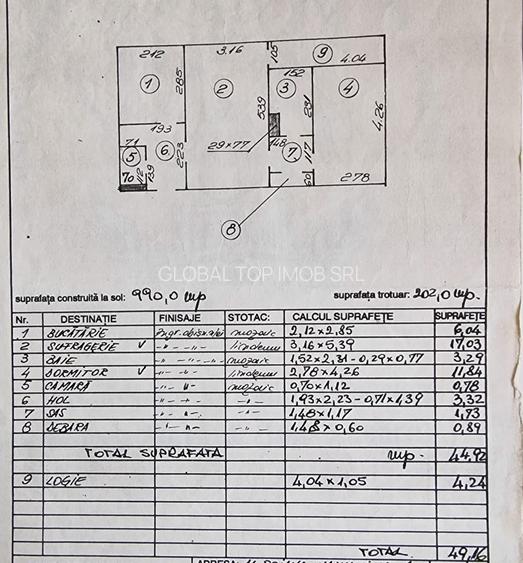 212
3.16
105
9
4.04
1
285
2
152
3
4
539
231
4.26
193
71
5
6
223
29×77
148
7
117
70
112
139
60
278
8
GLOBAL TOP IMOB SRL
suprafața construită la sol: 990,0 mp
suprafața trotuar: 202,0 mp.
Nr. DESTINAȚIE FINISAJE STOTAC: CALCUL SUPRAFEȚE SUPRAFEȚE
1 BUCĂTĂRIE mozaic 2,12×2,85 6,04
2 SUFRAGERIE v -"- -"- linoleum 3,16×5,39 17,03
3 BAIE -"- -"- mozaic 1,52×2,31-0,29×0,77 3,29
4 DORMITOR v -"- linoleum 2,78×4,26 11,84
5 CAMARĂ -"- mozaic 0,70×1,12 0,78
6 HOL -"- -"- 1,93×2,23-0,71×1,39 3,32
7 SAS -"- -"- 1,48×1,17 1,73
8 DEBARA -"- -"- 1,48×0,60 0,89
TOTAL SUPRAFATA mp. 44.92
9 LOGIE 4,04×1,05 4,24
TOTAL 49,16